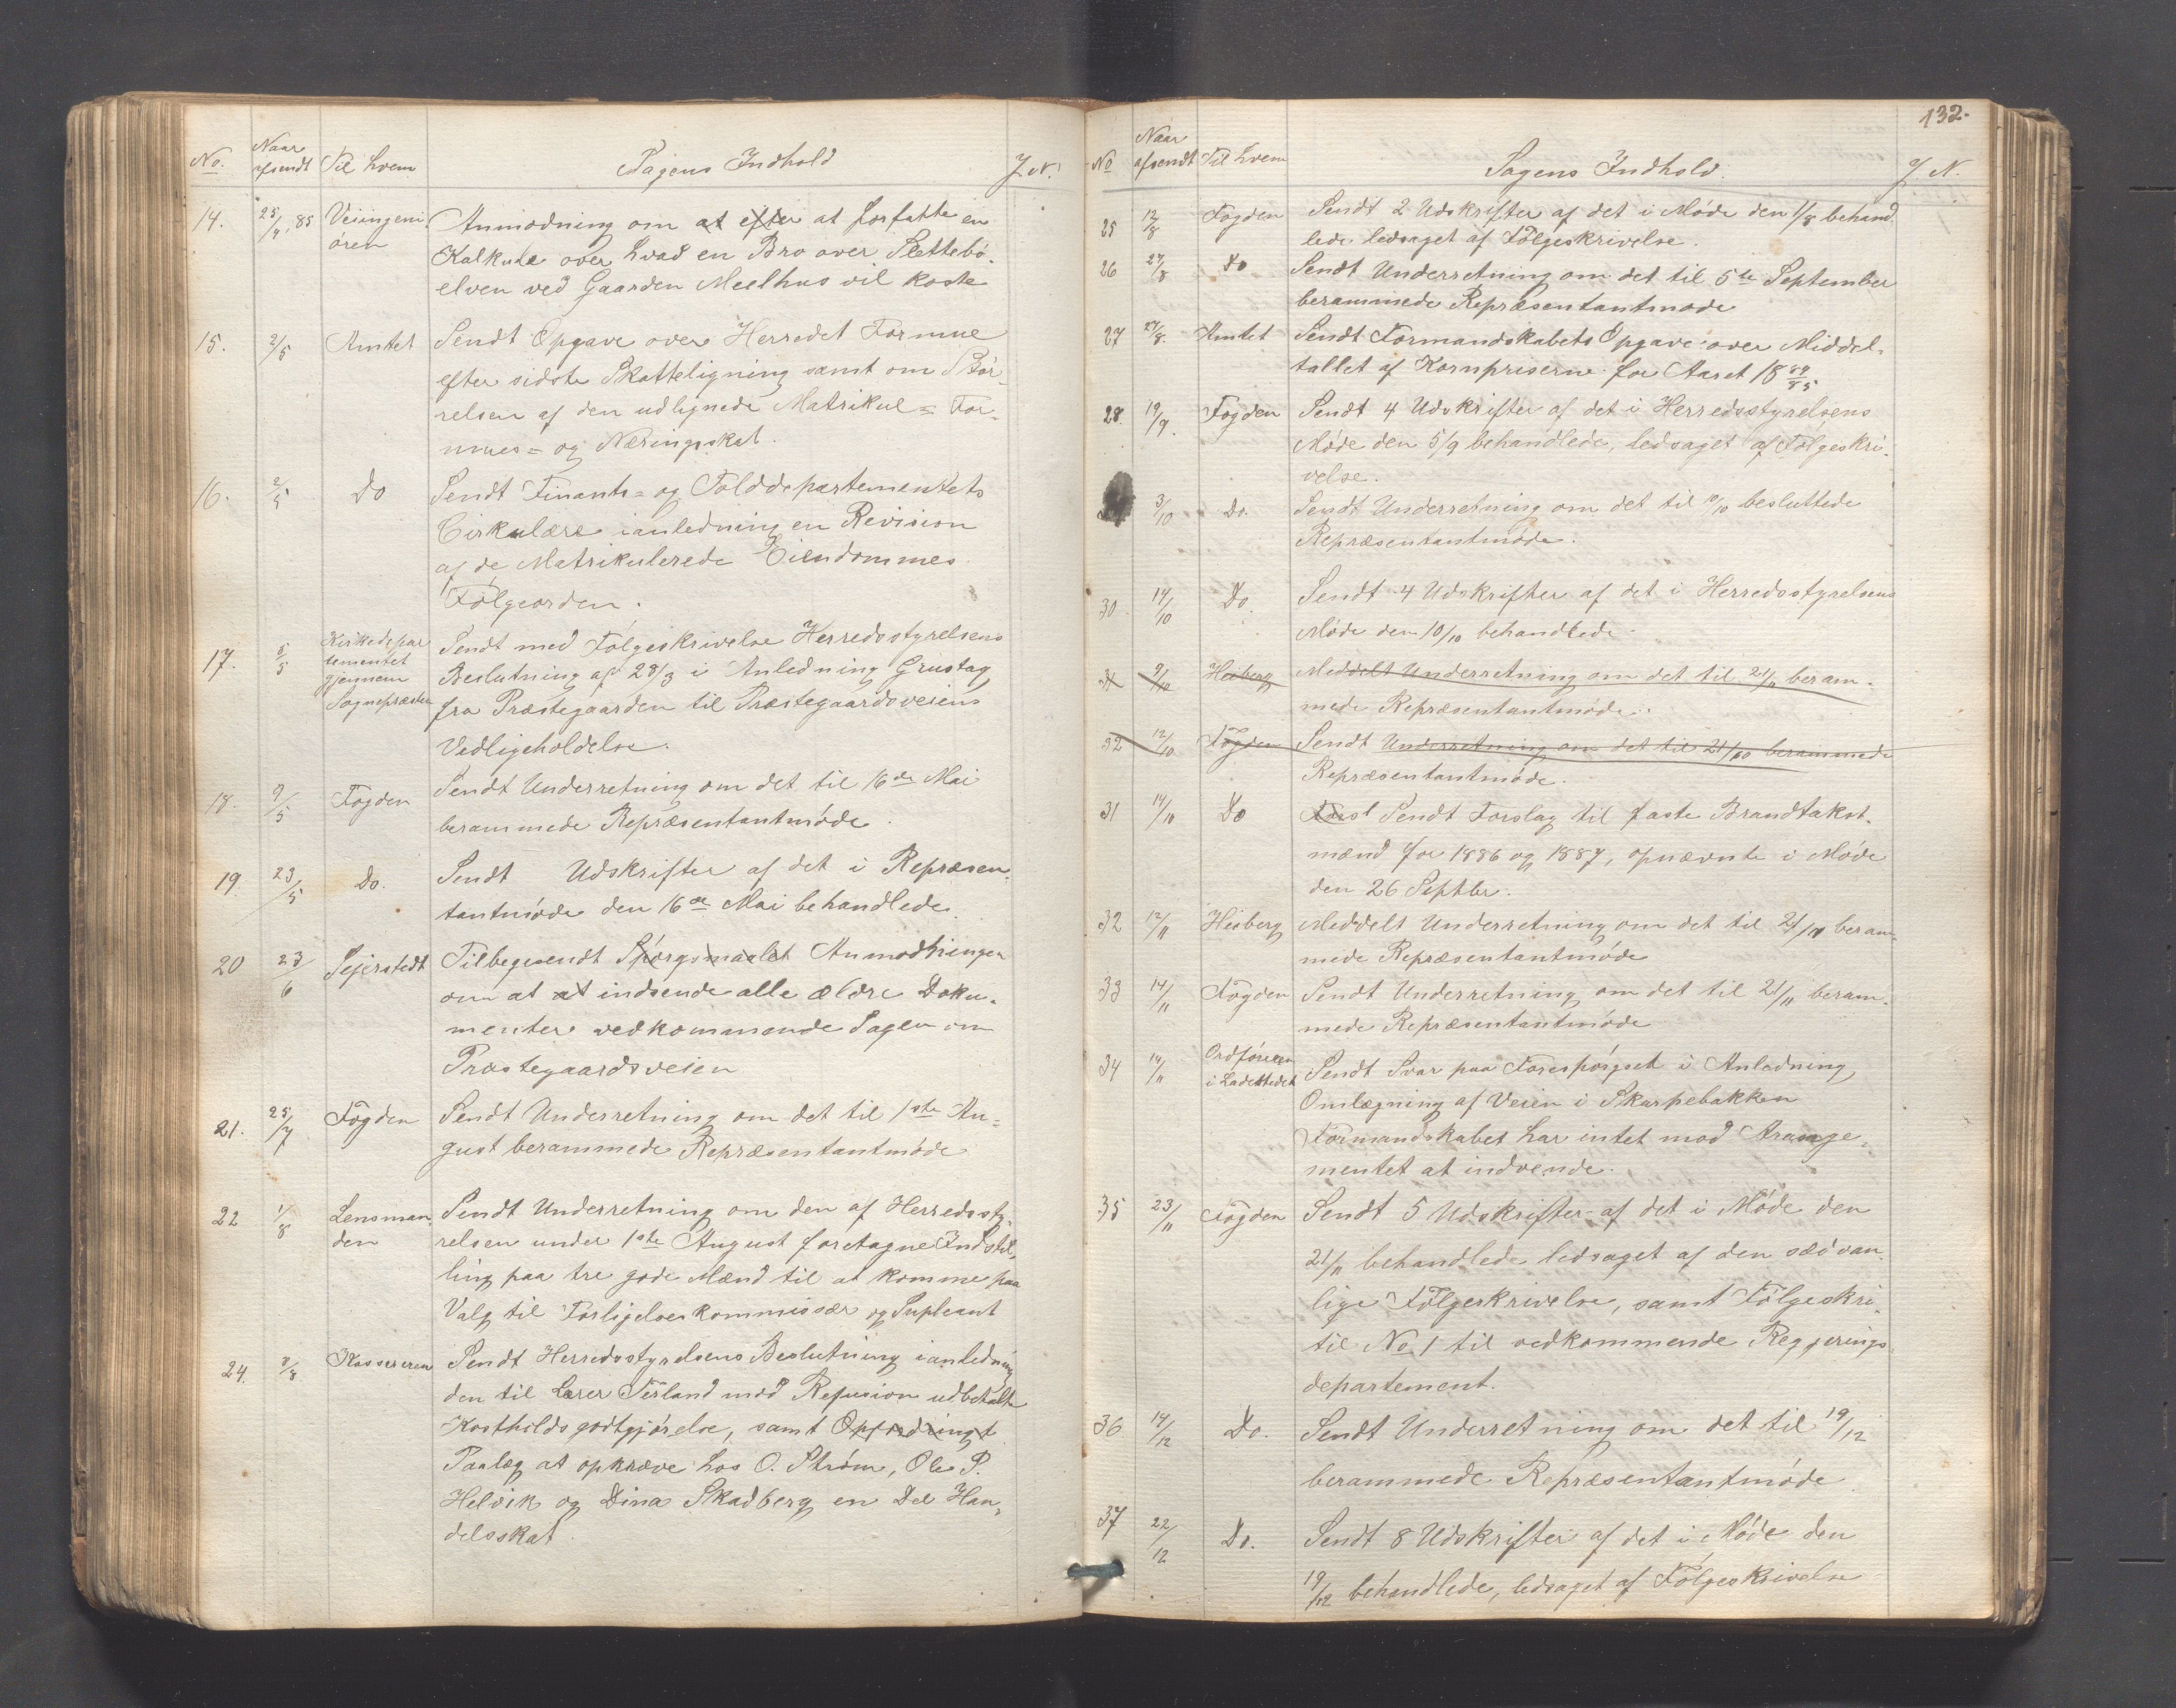 No. Naar afsendt Til hvem Sagens Indhold J. N.
14. 25/4. 85 Veiingeni- Anmodning om at efter at forfatte en
ören Kalkule over hvad en Bro over Slettebö-
elven ved Gaarden Meelhus vil koste
15. 2/5 Amtet Sendt Opgave over Herredet Formue
efter sidste Skatteligning samt om Stör-
relsen af den udlignede Matrikul= For-
mues= og Næringsskat.
16. 2/5 Do Sendt Finants= og Tolddepartementets
Cirkulære ianledning en Revision
af de Matrikulerede Eiendommes
Følgeorden.
17. 5/5 Kirkedepar Sendt med Følgeskrivelse Herredsstyrelsens
tementet Beslutning af 28/3 i Anledning Grustag
gjennem
Sognepræsten fra Præstegaarden til Præstegaardsveiens
Vedligeholdelse.
18. 9/5 Fogden Sendt Underretning om det til 16de Mai
berammede Repræsentantmøde.
19. 23/5 Do. Sendt Udskrifter af det i Repræsen-
tantmøde den 16de Mai behandlede.
20 23/6 Sejerstedt Tilbagesendt Spörgsmaalet Anmodningen
om at at indsende alle ældre Doku-
menter vedkommende Sagen om
Præstegaardsveien
21. 25/7 Fogden Sendt Underretning om det til 1ste Au-
gust berammede Repræsentantmøde
22 1/8 Lensman Sendt Underretning om den af Herredssty-
den relsen under 1ste August foretagne Indstil-
ling paa tre gode Mænd til at komme paa
Valg til Forligelseskommissær og Supleant
24. 8/8 Kassereren Sendt Herredsstyrelsens Beslutning ianledning
den til Lærer Tesland med Refusion udbetalte
Kostholdsgodtgjørelse, samt Opfordringt
Paalæg at opkræve hos O. Strøm, Ole P.
Helvik og Dina Skadberg en Del Han-
delsskat.
132.
No Naar afsendt Til hvem Sagens Indhold. J. N.
25 12/8 Fogden Sendt 2 Udskrifter af det i Møde den 1/8 behand
lede ledsaget af Følgeskrivelse.
26 27/8 Do Sendt Underretning om det til 5te September
berammede Repræsentantmøde
27 27/8. Amtet Sendt Formandskabets Opgave over Middel-
tallet af Kornpriserne for Aaret 18 84/85.
28. 19/9. Fogden Sendt 4 Udskrifter af det i Herredsstyrelsens
Møde den 5/9 behandlede, ledsaget af Følgeskri-
velse.
3/10 Do. Sendt Underretning om det til 10/10 besluttede
Repræsentantmøde.
30. 14/10 Do. Sendt 4 Udskrifter af det i Herredsstyrelsens
Møde den 10/10 behandlede
31 9/10 Heiberg Meddelt Underretning om det til 21/11 beram-
mede Repræsentantmøde.
32 12/10 Fogden Sendt Underretning om det til 21/10 berammede
Repræsentantmøde.
31 14/10 Do Forsl Sendt Forslag til faste Brandtakst-
mænd for 1886 og 1887, opnævnte i Møde
den 26 Septbr.
32 12/11 Heiberg Meddelt Underretning om det til 21/11 beram-
mede Repræsentantmøde
33 14/11 Fogden Sendt Underretning om det til 21/11 beram-
mede Repræsentantmøde
34 14/11 Ordføreren Sendt Svar paa Forespørgsel i Anledning
i Ladestedet Omlægning af Veien i Skarpebakken
Formandskabet har intet mod Arange-
mentet at indvende.
35 23/11 Fogden Sendt 5 Udskrifter af det i Møde den
21/11 behandlede ledsaget af den sædvan-
lige Følgeskrivelse, samt Følgeskri-
til No 1 til vedkommende Regjerings
departement.
36 14/12 Do. Sendt Underretning om det til 19/12
berammede Repræsentantmøde
37 22/12 Do. Sendt 8 Udskrifter af det i Møde den
19/12 behandlede, ledsaget af Følgeskrivelse